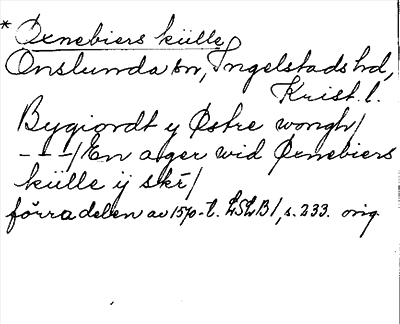 * Oxnebiers külle
Onslunda sn, Ingelstads hd,
Krist. l.
Bygiordt y Østre wongh/
- - -/En ager wid Oxnebiers
külle ÿ skr̄/
förra delen av 1570-t. LSLB 1, s. 233. orig.